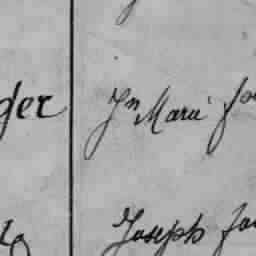 ger Jn Marie Jo
Joseph Jo